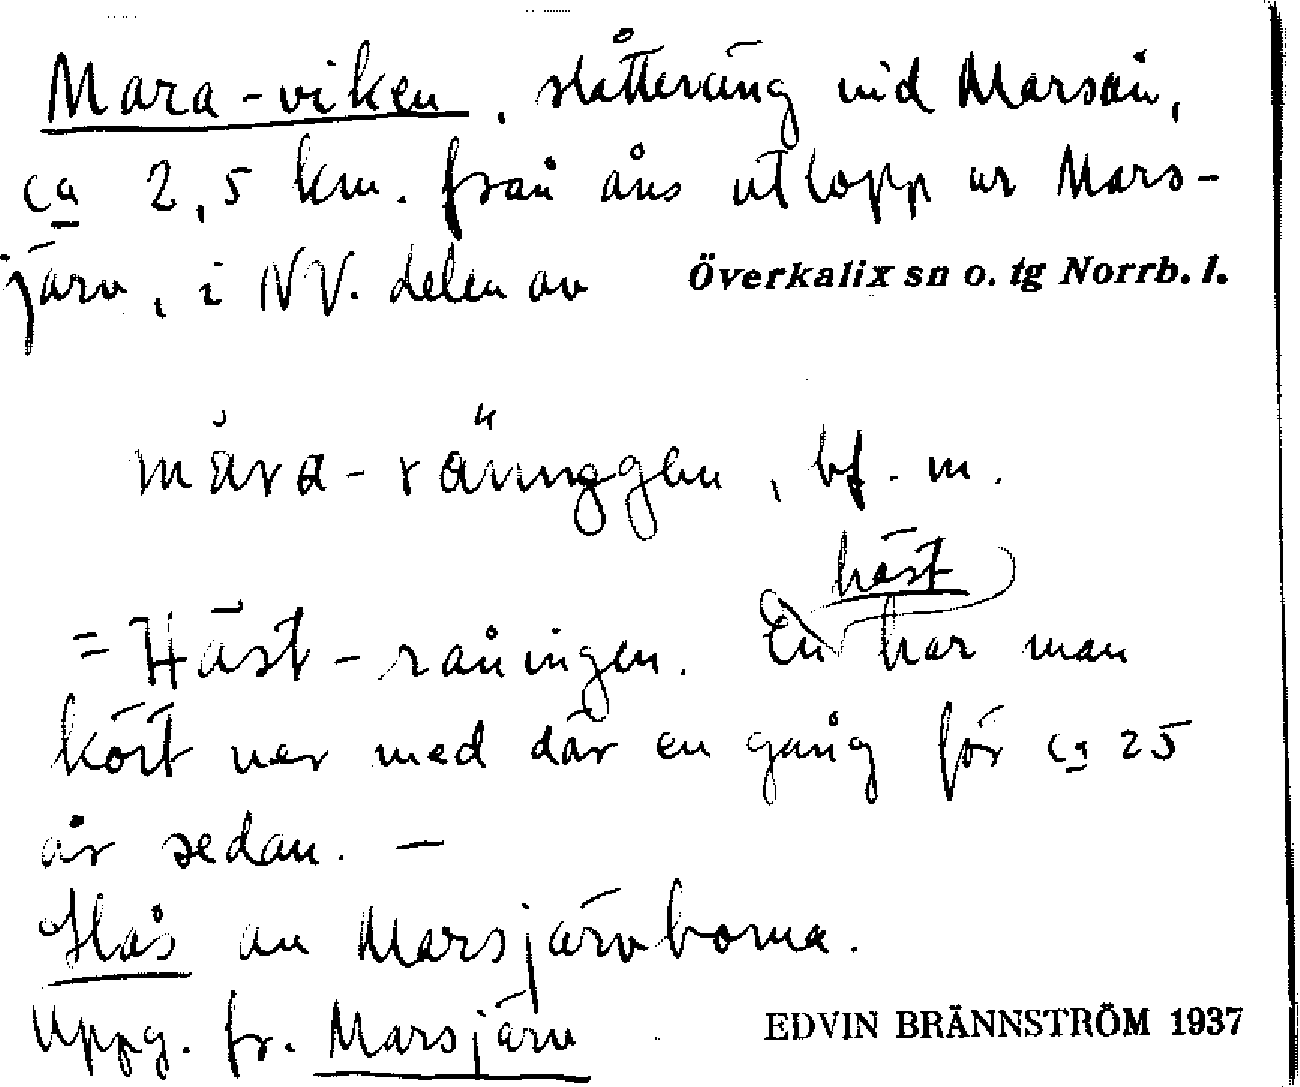 Mara-viken, slåtteräng vid Marsån,
ca 2,5 km. från åns utlopp ur Mars-
järv, i NV. delen av Överkalix sn o. tg Norrb. l.
bf. m.
häst
= Häst-råningen. En har man
kört ner med där en gång för ca 25
år sedan. —
Slås av Marsjärvborna.
Uppg. fr. Marsjärv EDVIN BRÄNNSTRÖM 1937